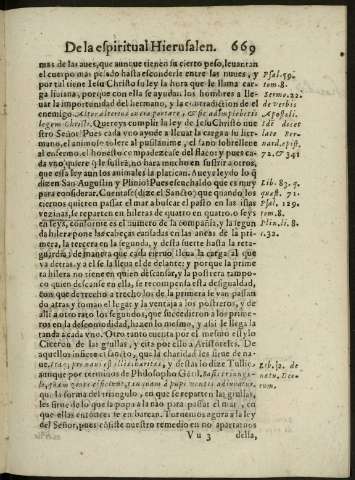 De la espiritual Hierusalen. 669
mas de las aues, que aunque tienen su cierto peso, leuantan
el cuerpo mas pesado hasta esconderle entre las nuues, y
por tal tiene Iesu Christo su ley a la hora que le llama car-
ga liuiana, porque con ella se ayudan los hombres a lle-
uar la importunidad del hermano, y la contradicion de el
enemigo. Alter alterius onera portate, & sic adimplebitis
legem Christi. Quereys cumplir la ley de Iesu Christo nue
stro Señor? Pues cada vno ayude a lleuar la carga a su her-
mano, el animoso tolere al pusilanime, el sano sobrelleue
al enfermo, el honesto compadezcase del flaco y pues ca-
da vno quiere que le sufran, no hara mucho en sufrir a otros,
que essa ley aun los animales la platican. Aueys leydo lo que
dizen San Augustin y Plinio? Pues escuchaldo que es muy
para considerar. Cuentase (dize el Sancto) que quando los
cieruos quieren passar el mar a buscar el pasto en las islas
vezinas, se reparten en hileras de quatro en quatro, o seys
en seys, conforme es el numero de la compañia, y la segun
da hilera pone las cabeças cansadas en las ancas de la pri-
mera, la tercera en la segunda, y desta suerte hasta la reta-
guardia, de manera que cada cieruo lleua la carga al que
va detras, y a el se la lleua el de delante; y porque la prime
ra hilera no tiene en quien descansar, y la postrera tampo-
co quien descanse en ella, se recompensa esta desigualdad,
con que de trecho a trecho los de la primera se van passan
do atras, y toman el lugar y la ventaja a los postreros, y de
alli a otro rato los segundos, que succedieron a los prime-
ros en la descomodidad, hazen lo mesmo, y assi le llega la
tanda a cada vno. Otro tanto cuenta por el mesmo estylo
Ciceron de las grullas, y cita por ello a Aristoteles. De
aquellos infiere el sancto, que la charidad les sirue de na-
ue,
amique por terminos de Philosopho Gētil,
que la forma del triangulo, en que se reparten las grullas,
les sirue de lo que la popa a la nao para passar el mar, en
que ellas entonces se embarcan. Tornemos agora a la ley
del Señor, pues consiste nuestro remedio en no apartarnos
Vu 3 della,
Psal. 59.
tom. 8.
Sermo. 22.
de verbis
Apostoli.
Idē dicit
late Ber-
nard. epist.
72. & 341
Lib. 83. q.
quæst. 71.
Psal. 129.
tom. 8.
Plin. li. 8.
c. 32.
Lib. 2. de
natu. Deo-
rum.